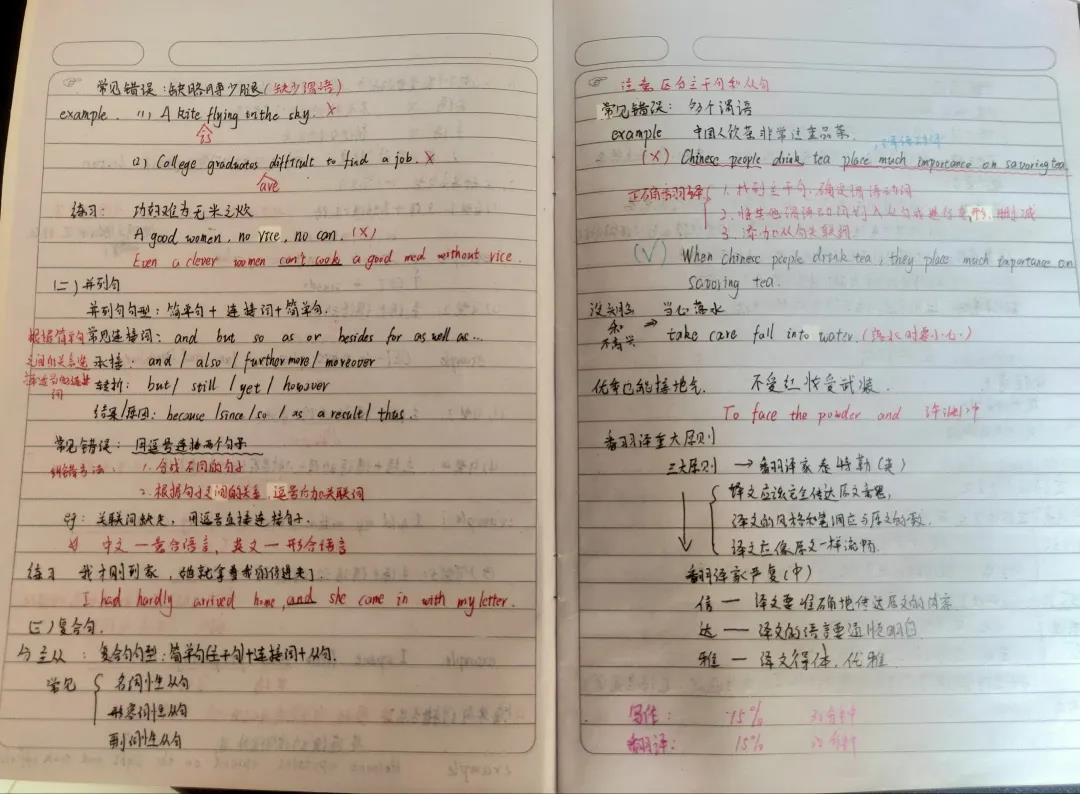 常见错误:缺胳膊少腿(缺少谓语)
example. (1) A kite flying in the sky. ×
is
(2) College graduates difficult to find a job. ×
ave
练习: 巧妇难为无米之炊
A good women, no rice, no can. (×)
Even a clever women can't cook a good meal without rice.
(二)并列句
并列句句型:简单句+连接词+简单句.
常见连接词: and but so as or besides for as well as...
根据简单句之间的关系选择适当的连接词
承接: and / also / furthermore / moreover
转折: but / still / yet / however
结果/原因: because /since /so / as a result / thus.
常见错误: 用逗号连接两个句子
纠错方法: 1. 合找不同的句子
2. 根据句子之间的关系,逗号后加关联词
eg: 关联词缺失, 用逗号直接连接句子.
中文一意合语言, 英文一形合语言
练习 我才刚到家, 她就拿着我的信进来了.
I had hardly arrived home, and she came in with my letter.
(三)复合句.
主从: 复合句句型:简单句(主句)+连接词+从句.
常见 名词性从句
形容词性从句
副词性从句
注意区分主干句和从句
常见错误: 多个谓语
example 中国人饮茶非常注重品茶.
(×) Chinese people drink tea place much importance on savoring tea.
正确翻译 1. 找到主干句,确定谓语动词
2. 将其他谓语动词列入从句或进行变形、删减
3. 添加从句关联词
(√) When chinese people drink tea, they place much importance on
savoring tea.
没头脑和不高兴 ⇒ 当心落水
take care fall into water. (落水时要小心)
优雅也能接地气. 不爱红妆爱武装.
To face the powder and
翻译重大原则
三大原则 → 翻译家泰特勒(英)
译文应该完全传达原文意思,
译文的风格和笔调应与原文的一致.
译文应像原文一样流畅.
翻译家严复(中)
信 — 译文要准确地传达原文的内容
达 — 译文的语言要通顺明白.
雅 — 译文得体、优雅.
写作: 15% 30分钟
翻译: 15% 30分钟